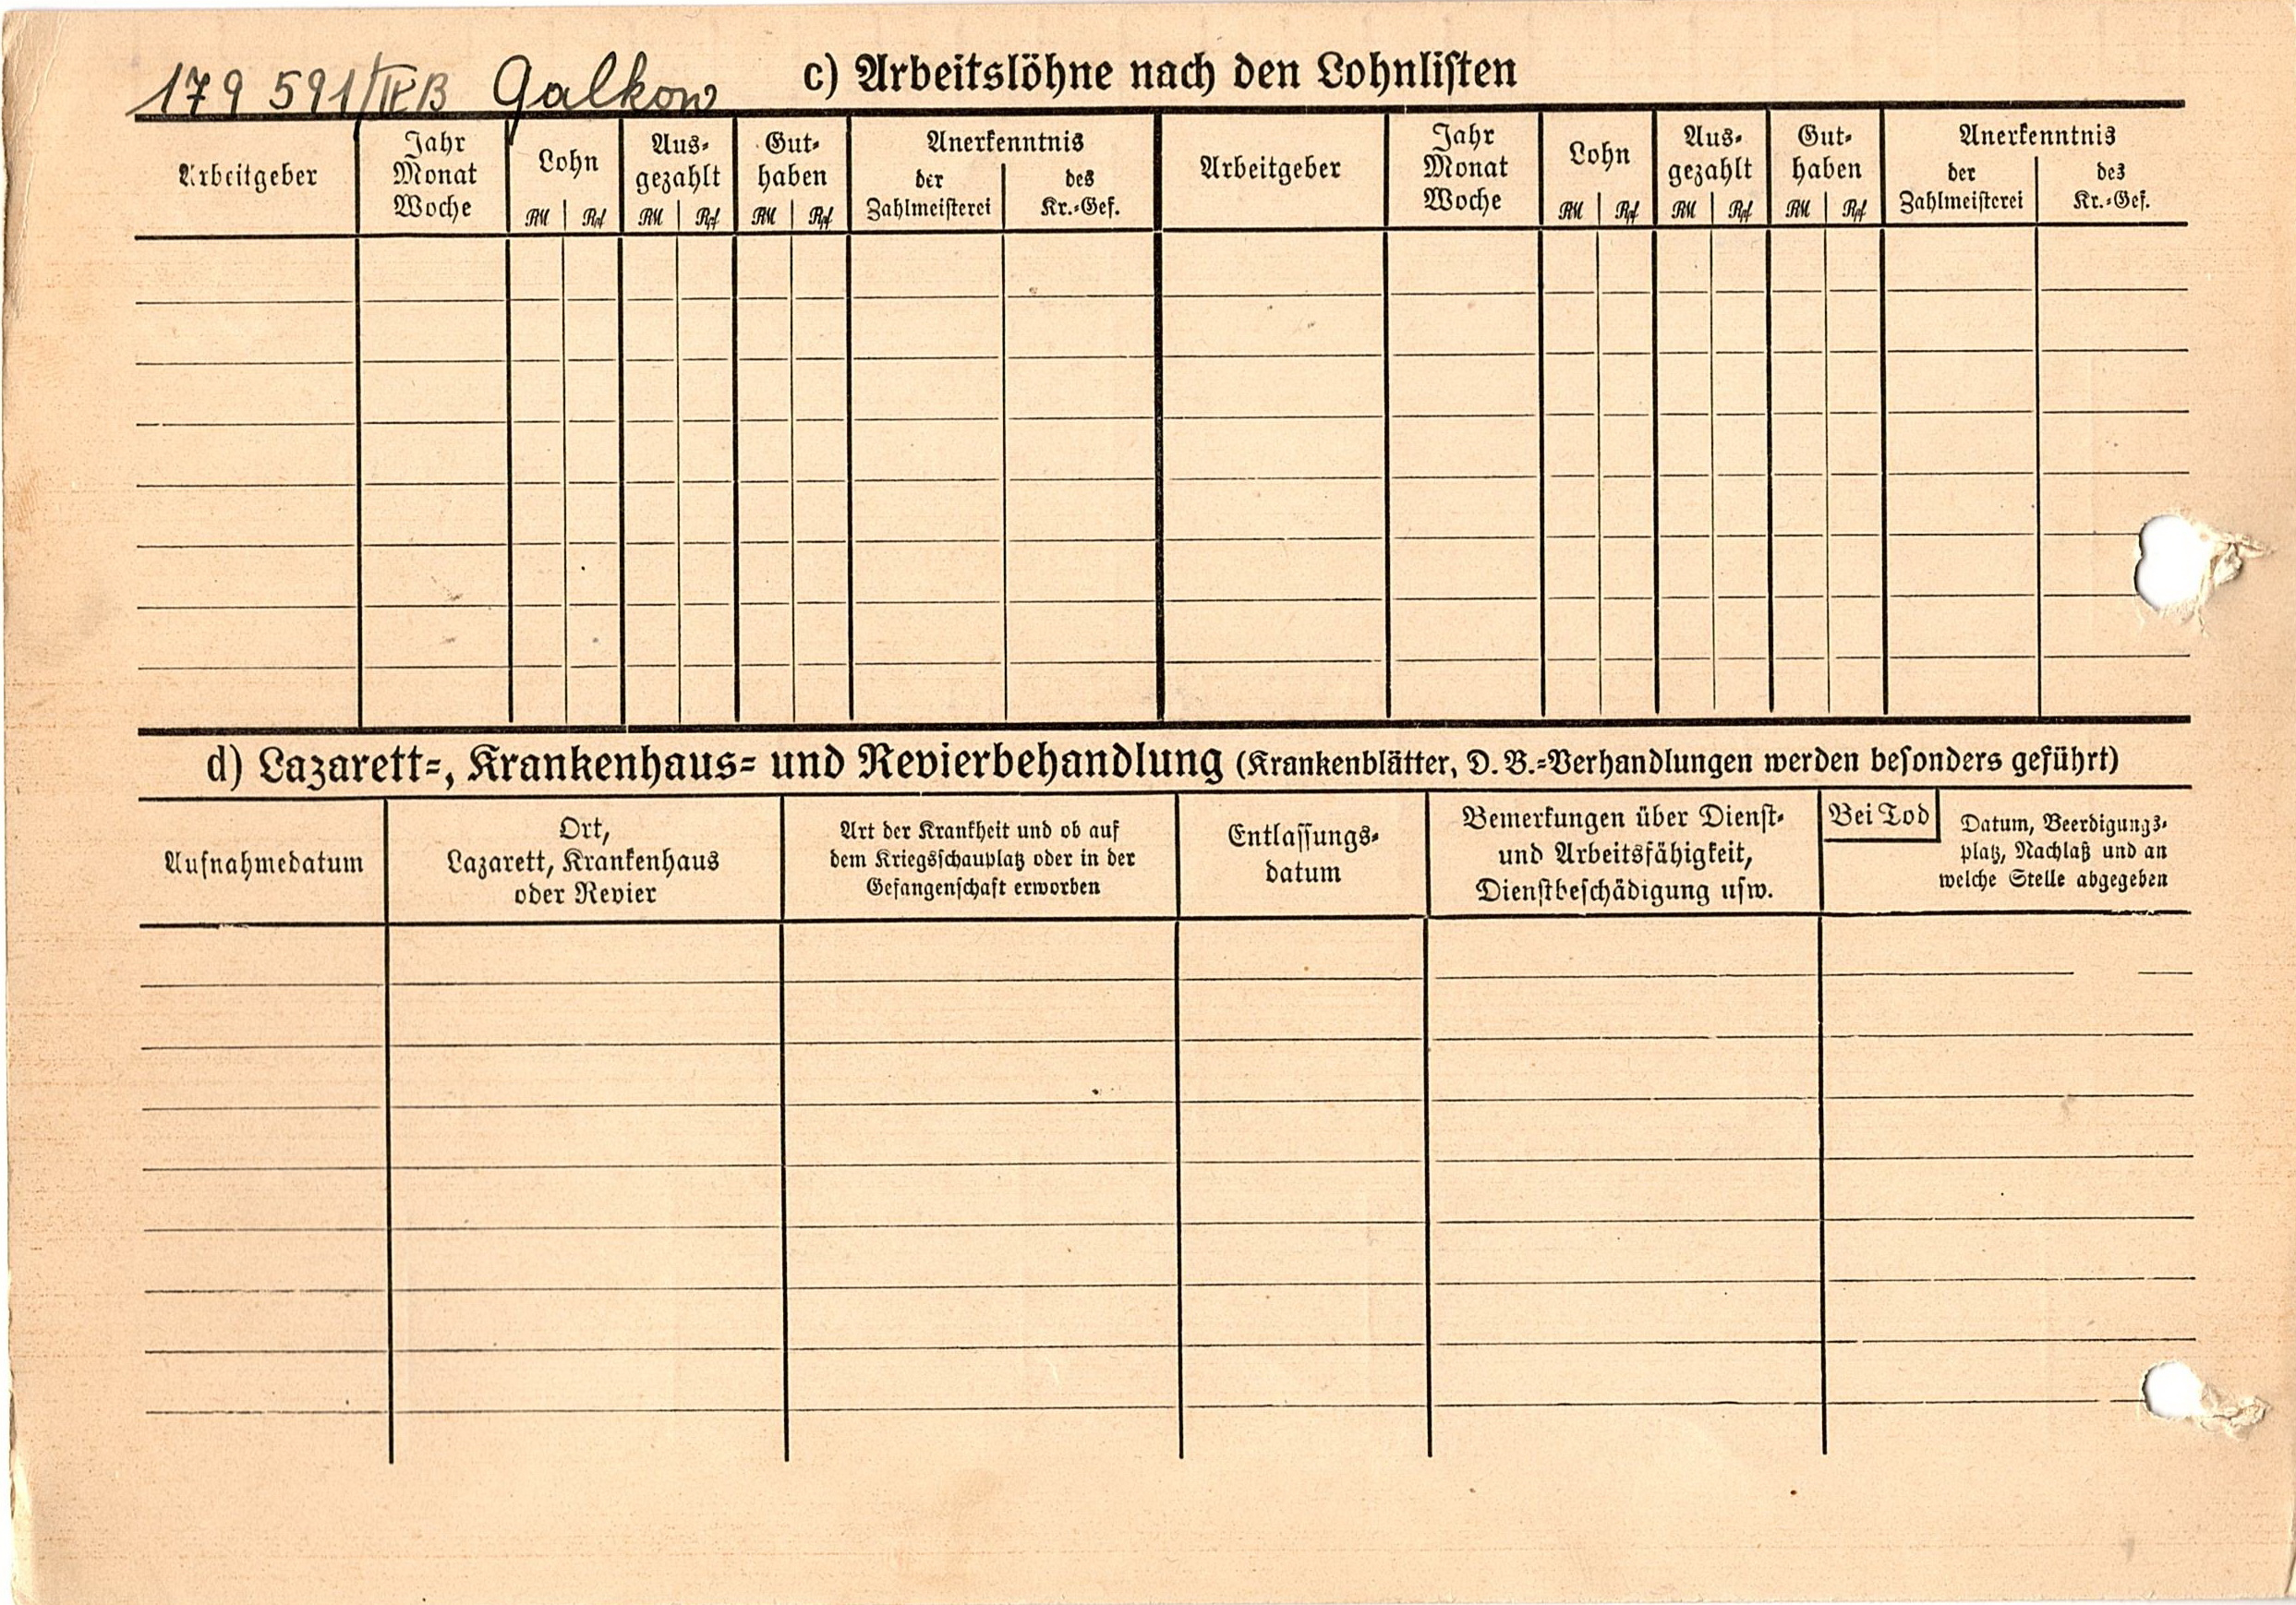 179 591/IVB Galkow
c) Arbeitslöhne nach den Lohnlisten
Arbeitgeber
Jahr
Monat
Woche
Lohn
RM Rpf
Aus-
gezahlt
RM Rpf
Gut-
haben
RM Rpf
Anerkenntnis
der
Zahlmeisterei
des
Kr.-Gef.
Arbeitgeber
Jahr
Monat
Woche
Lohn
RM Rpf
Aus-
gezahlt
RM Rpf
Gut-
haben
RM Rpf
Anerkenntnis
der
Zahlmeisterei
des
Kr.-Gef.
d) Lazarett-, Krankenhaus- und Revierbehandlung (Krankenblätter, D. B.-Verhandlungen werden besonders geführt)
Aufnahmedatum
Ort,
Lazarett, Krankenhaus
oder Revier
Art der Krankheit und ob auf
dem Kriegsschauplatz oder in der
Gefangenschaft erworben
Entlassungs-
datum
Bemerkungen über Dienst-
und Arbeitsfähigkeit,
Dienstbeschädigung usw.
Bei Tod
Datum, Beerdigungs-
platz, Nachlaß und an
welche Stelle abgegeben